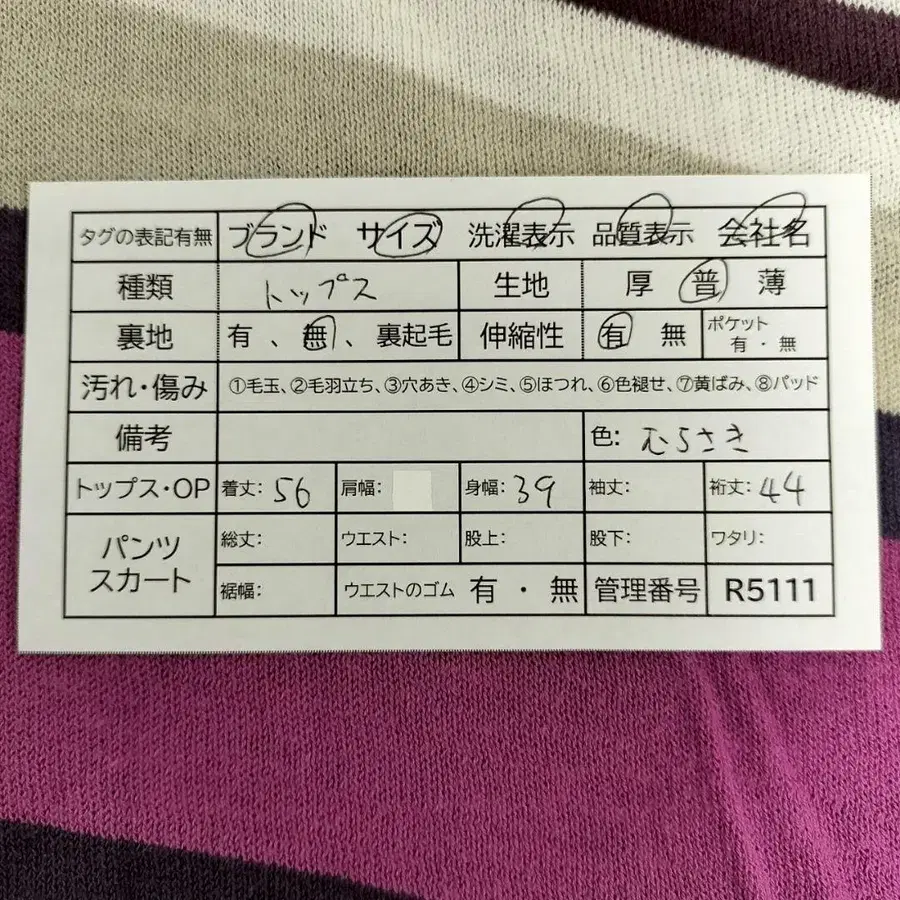 タグの表記有無 ブランド サイズ 洗濯表示 品質表示 会社名
種類 トップス 生地 厚 普 薄
裏地 有 、 無 、 裏起毛 伸縮性 有 無 ポケット 有 ・ 無
汚れ・傷み ①毛玉、②毛羽立ち、③穴あき、④シミ、⑤ほつれ、⑥色褪せ、⑦黄ばみ、⑧パッド
備考 色: むらさき
トップス・OP 着丈: 56 肩幅: 身幅: 39 袖丈: 裄丈: 44
パンツ スカート 総丈: ウエスト: 股上: 股下: ワタリ:
裾幅: ウエストのゴム 有 ・ 無 管理番号 R5111